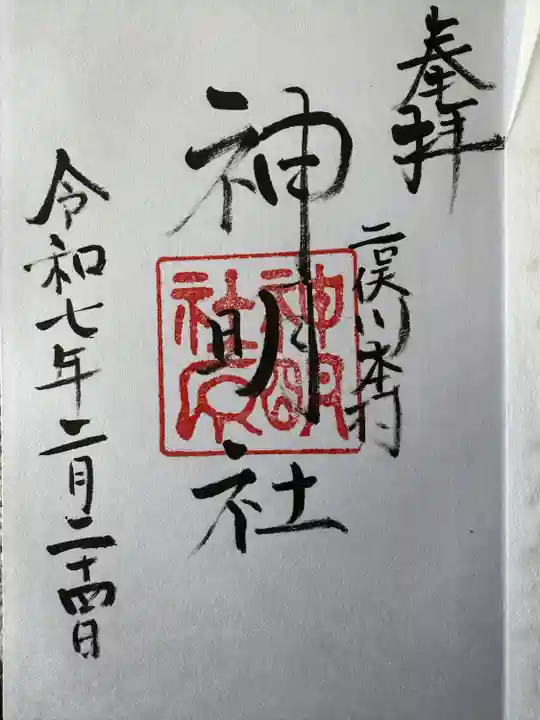 奉拝
二俣川本村
神明社
神明
社印
令和七年二月二十四日